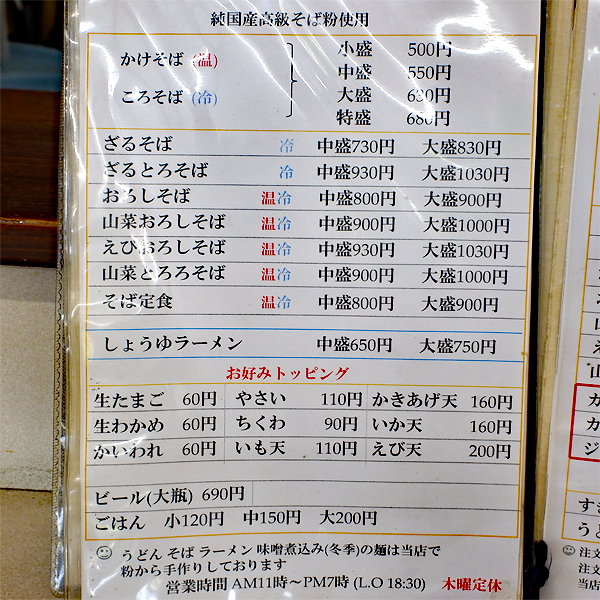 純国産高級そば粉使用
かけそば (温)
ころそば (冷)
小盛 500円
中盛 550円
大盛 630円
特盛 680円
ざるそば 冷 中盛730円 大盛830円
ざるとろそば 冷 中盛930円 大盛1030円
おろしそば 温冷 中盛800円 大盛900円
山菜おろしそば 温冷 中盛900円 大盛1000円
えびおろしそば 温冷 中盛930円 大盛1030円
山菜とろろそば 温冷 中盛900円 大盛1000円
そば定食 温冷 中盛800円 大盛900円
しょうゆラーメン 中盛650円 大盛750円
お好みトッピング
生たまご 60円 やさい 110円 かきあげ天 160円
生わかめ 60円 ちくわ 90円 いか天 160円
かいわれ 60円 いも天 110円 えび天 200円
ビール(大瓶) 690円
ごはん 小120円 中150円 大200円
うどん そば ラーメン 味噌煮込み(冬季)の麺は当店で
粉から手作りしております
営業時間 AM11時～PM7時 (L.O 18:30) 木曜定休